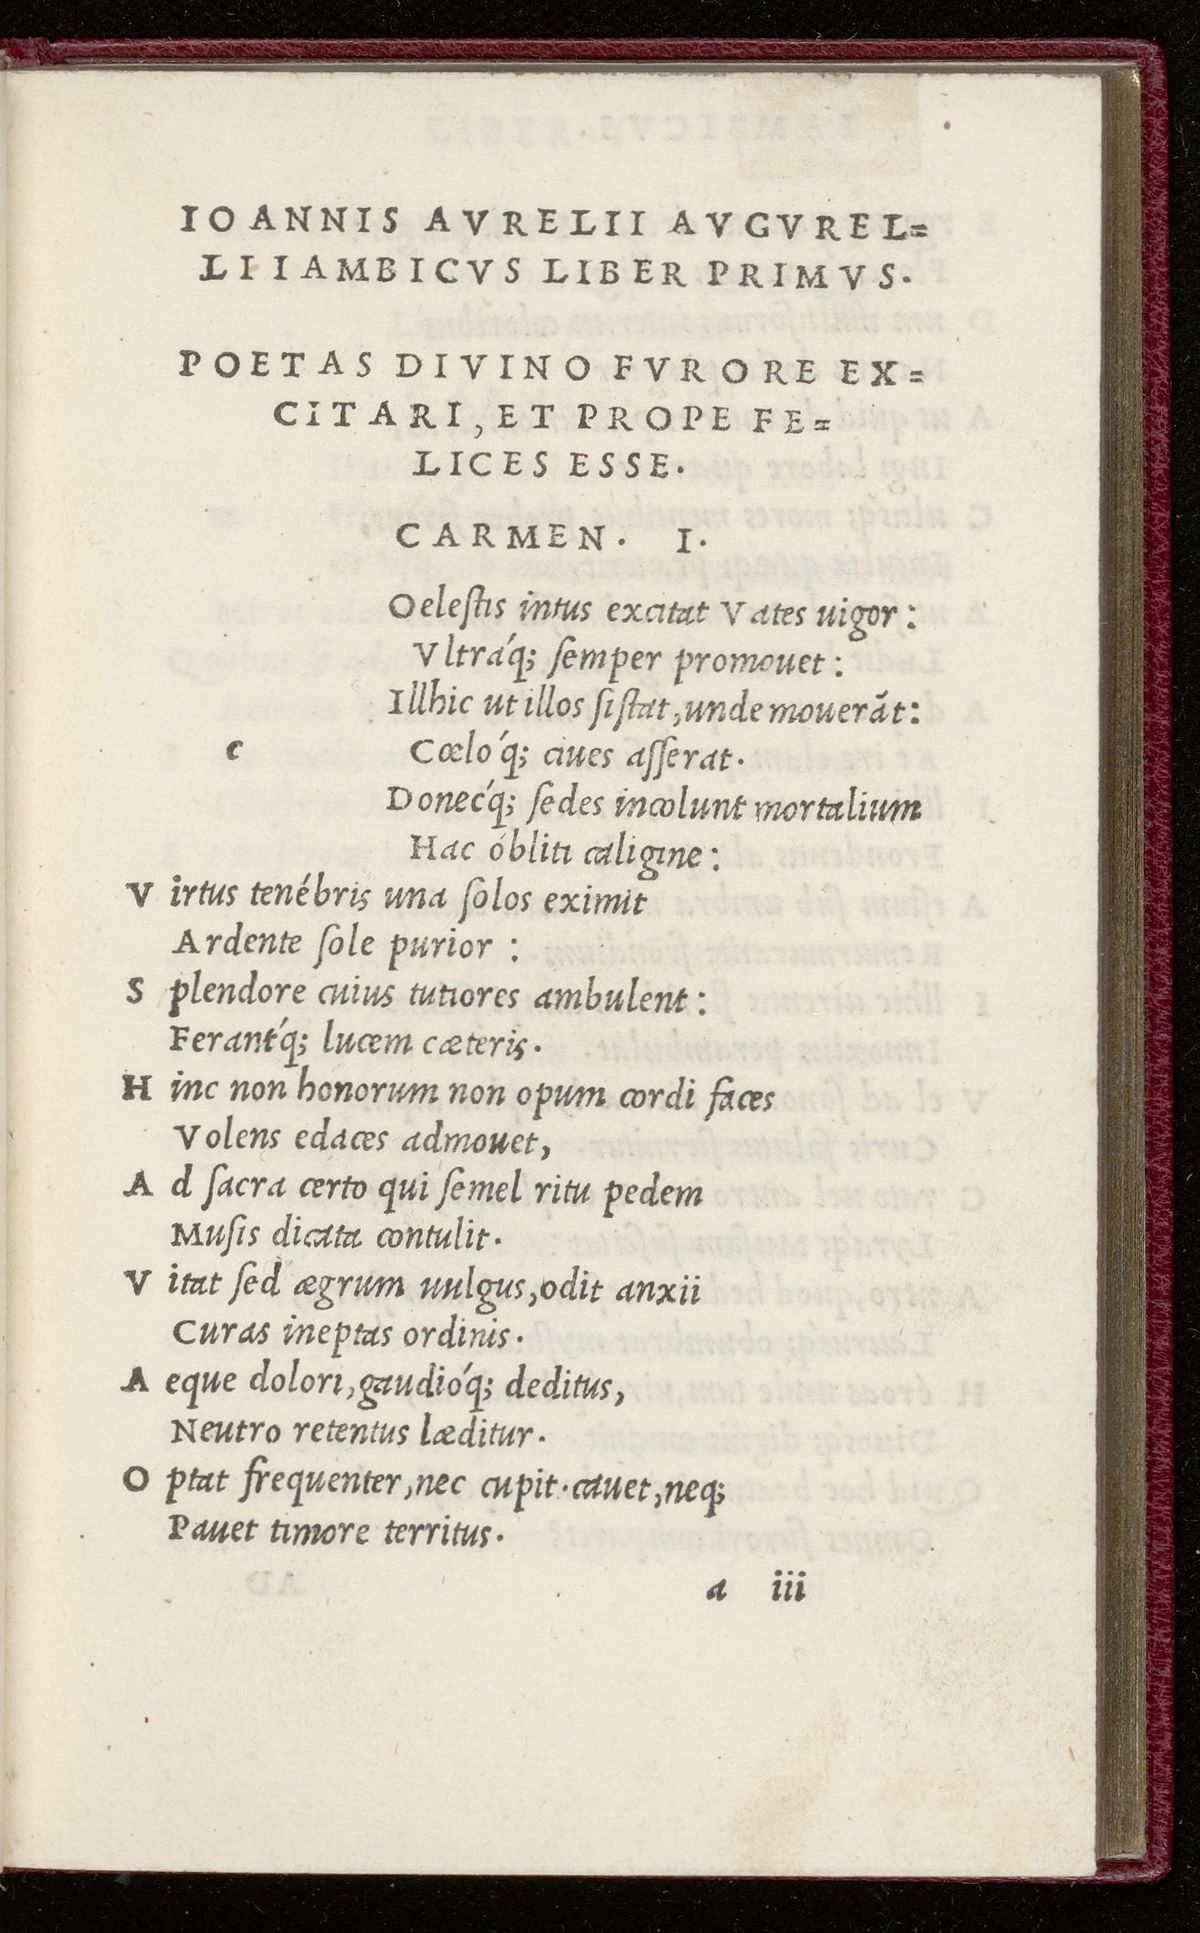 IOANNIS AVRELII AVGVREL=
LI IAMBICVS LIBER PRIMVS.
POETAS DIVINO FVRORE EX=
CITARI, ET PROPE FE=
LICES ESSE.
CARMEN. I.
Oeleſtis intus excitat Vates uigor:
Vltráq; ſemper promouet:
Illhic ut illos ſiſtat, unde mouerãt:
c Cœlóq; ciues aſſerat.
Donecq́; ſedes incolunt mortalium
Hac óbliti caligine:
V irtus tenébris una ſolos eximit
Ardente ſole purior:
S plendore cuius tutiores ambulent:
Ferantq́; lucem cæteris.
H inc non honorum non opum cordi faces
Volens edaces admouet,
A d ſacra certo qui ſemel ritu pedem
Muſis dicata contulit.
V itat ſed ægrum uulgus, odit anxii
Curas ineptas ordinis.
A eque dolori, gaudióq; deditus,
Neutro retentus læditur.
O ptat frequenter, nec cupit. cauet, neq;
Pauet timore territus.
a iii